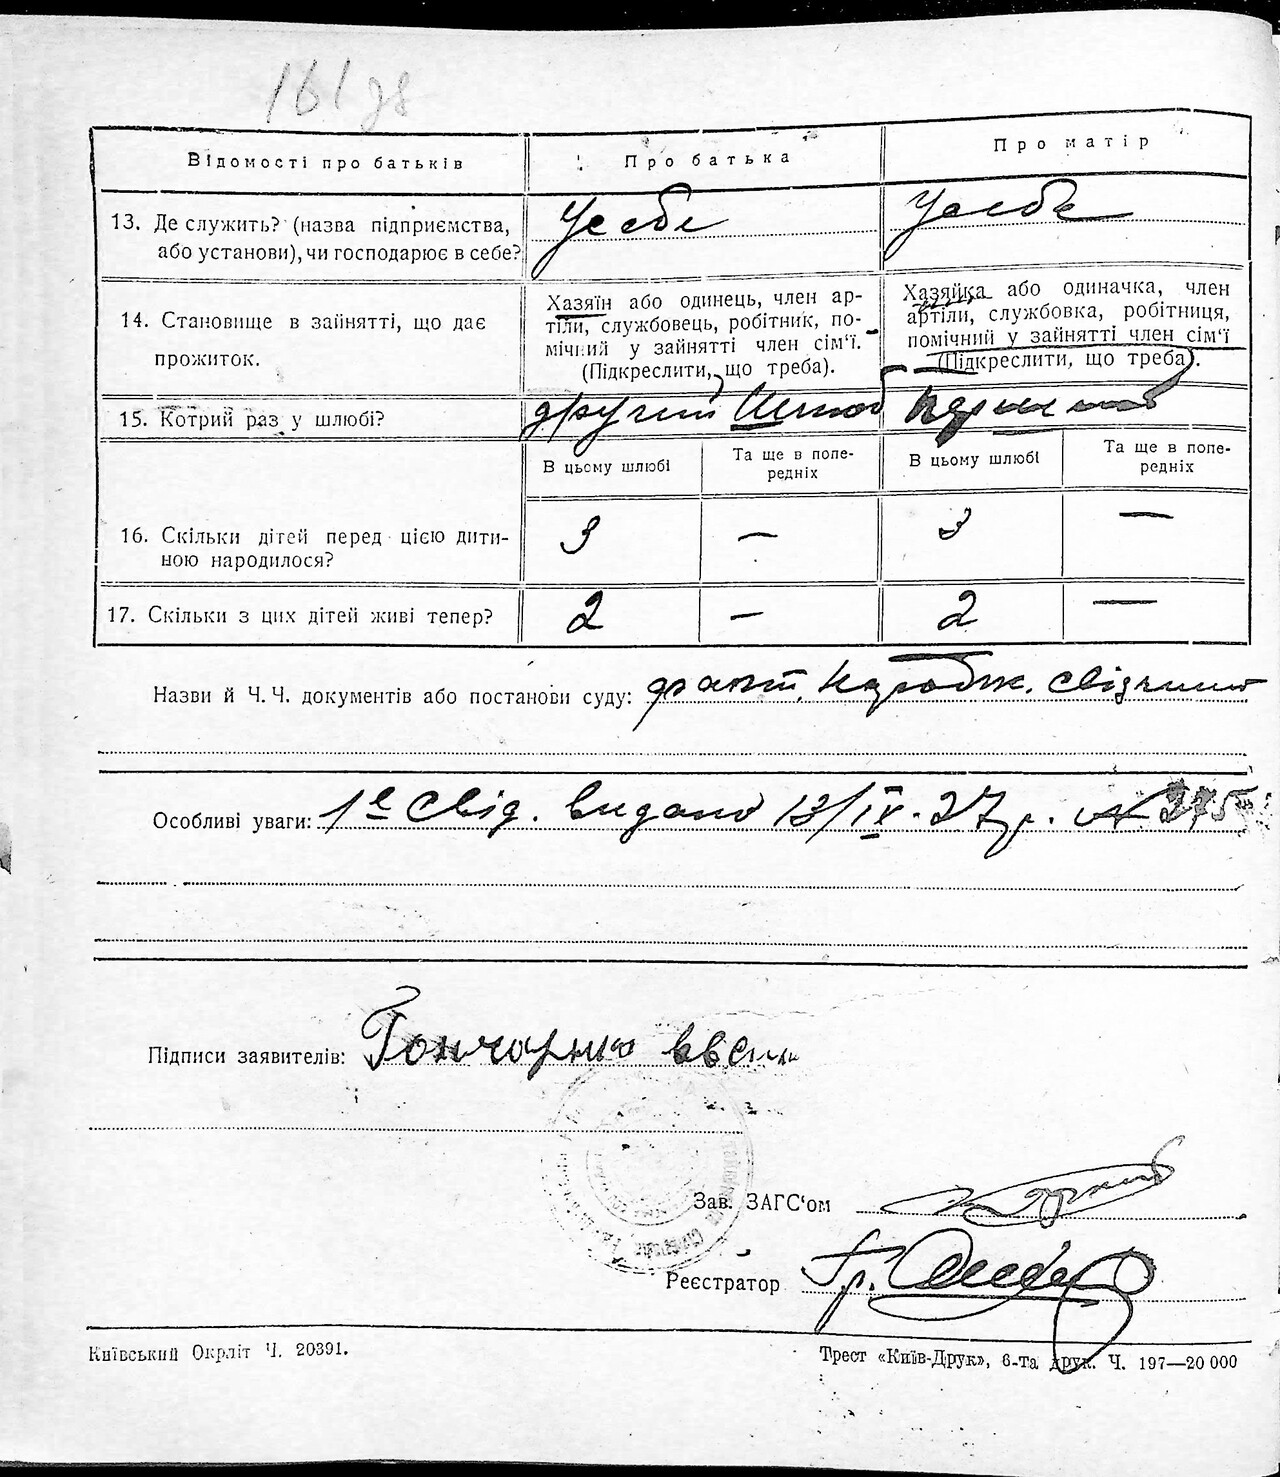 161 зв
Відомості про батьків
Про батька
Про матір
13. Де служить? (назва підприємства,
або установи), чи господарює в себе?
У себе
У себе
14. Становище в зайнятті, що дає
прожиток.
Хазяїн або одинець, член ар-
тіли, службовець, робітник, по-
мічний у зайнятті член сім'ї.
(Підкреслити, що треба).
Хазяйка або одиначка, член
артіли, службовка, робітниця,
помічний у зайнятті член сім'ї
(Підкреслити, що треба).
15. Котрий раз у шлюбі?
другий шлюб
В цьому шлюбі
Та ще в попе-
редніх
В цьому шлюбі
Та ще в попе-
редніх
16. Скільки дітей перед цією дити-
ною народилося?
3
—
3
—
17. Скільки з цих дітей живі тепер?
2
—
2
—
Назви й Ч. Ч. документів або постанови суду: факт. народж. свідчить
Особливі уваги: 1е свід. видано 13/IX. 27 р. № 275
Підписи заявителів: Гончаренко
Зав. ЗАГС'ом
Реєстратор
Київський Окрліт Ч. 20391.
Трест «Київ-Друк», 6-та друк. Ч. 197—20 000